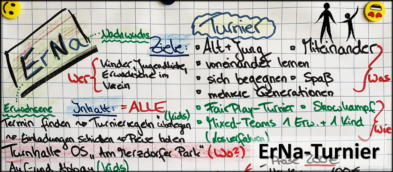 ErNa
Nachwuchs
Turnier
Ziele:
• Alt + Jung • Miteinander
• voneinander lernen
• sich begegnen • Spaß
• mehrere Generationen
Wer
Kinder, Jugendliche,
Erwachsene im
Verein
Was
Erwachsene
Inhalt: = ALLE
(Kids)
Termin finden → Turnierregeln überlegen
→ Einladungen schicken → Preise holen
• FairPlay-Turnier • Showkampf
• Mixed-Teams 1 Erw. + 1 Kind
Wie
Turnhalle OS „Am Merzdorfer Park" (Wo?)
Auf- und Abbau (Kids)
ErNa-Turnier